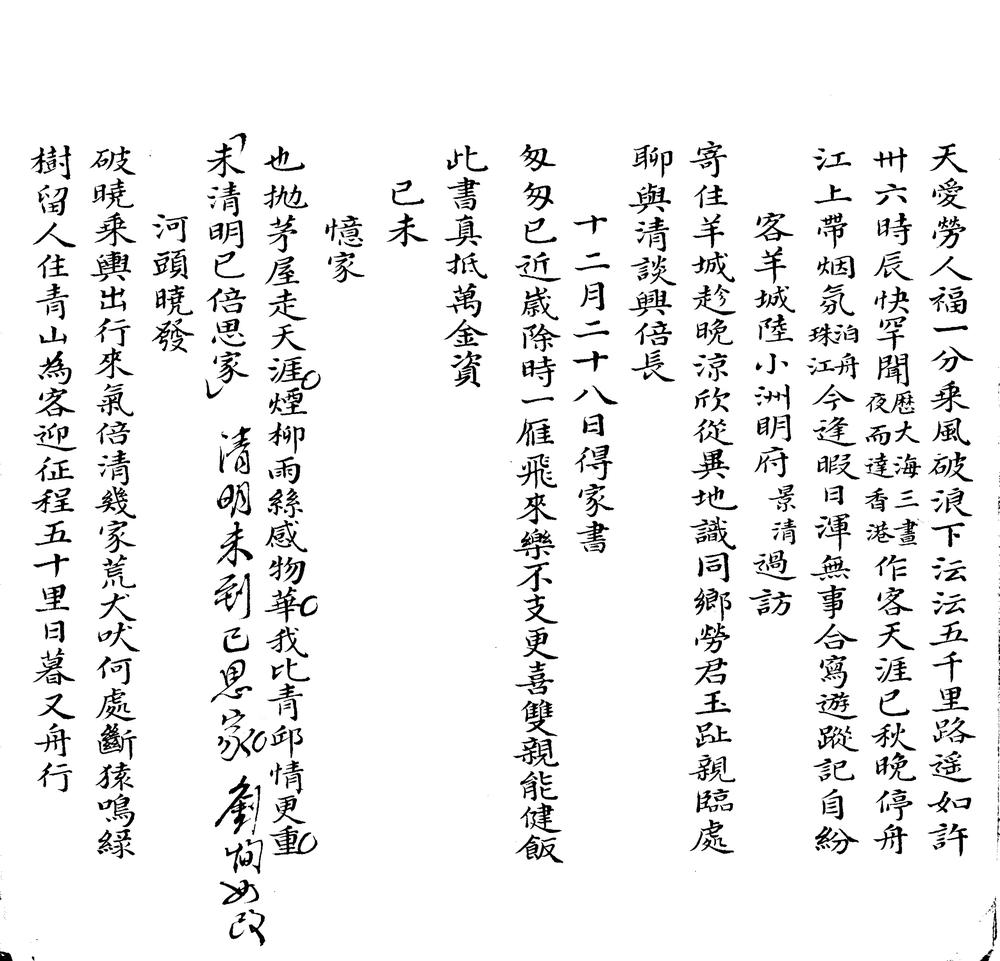 天愛勞人福一分乘風破浪下沄沄五千里路遥如許
卅六時辰快罕聞歷大海三晝夜而達香港作客天涯已秋晚停舟
江上帶烟氛泊舟珠江今逢暇日渾無事合寫遊蹤記自紛
客羊城陸小洲明府景清過訪
寄住羊城趁晚涼欣從異地識同鄉勞君玉趾親臨處
聊與清談興倍長
十二月二十八日得家書
匆匆已近歲除時一雁飛來樂不支更喜雙親能健飯
此書真抵萬金資
己未
憶家
也拋茅屋走天涯煙柳雨絲感物華我比青邱情更重
未清明已倍思家 清明未到已思家 劉恂如改
河頭曉發
破曉乘輿出行來氣倍清幾家荒犬吠何處斷猿鳴綠
樹留人住青山為客迎征程五十里日暮又舟行